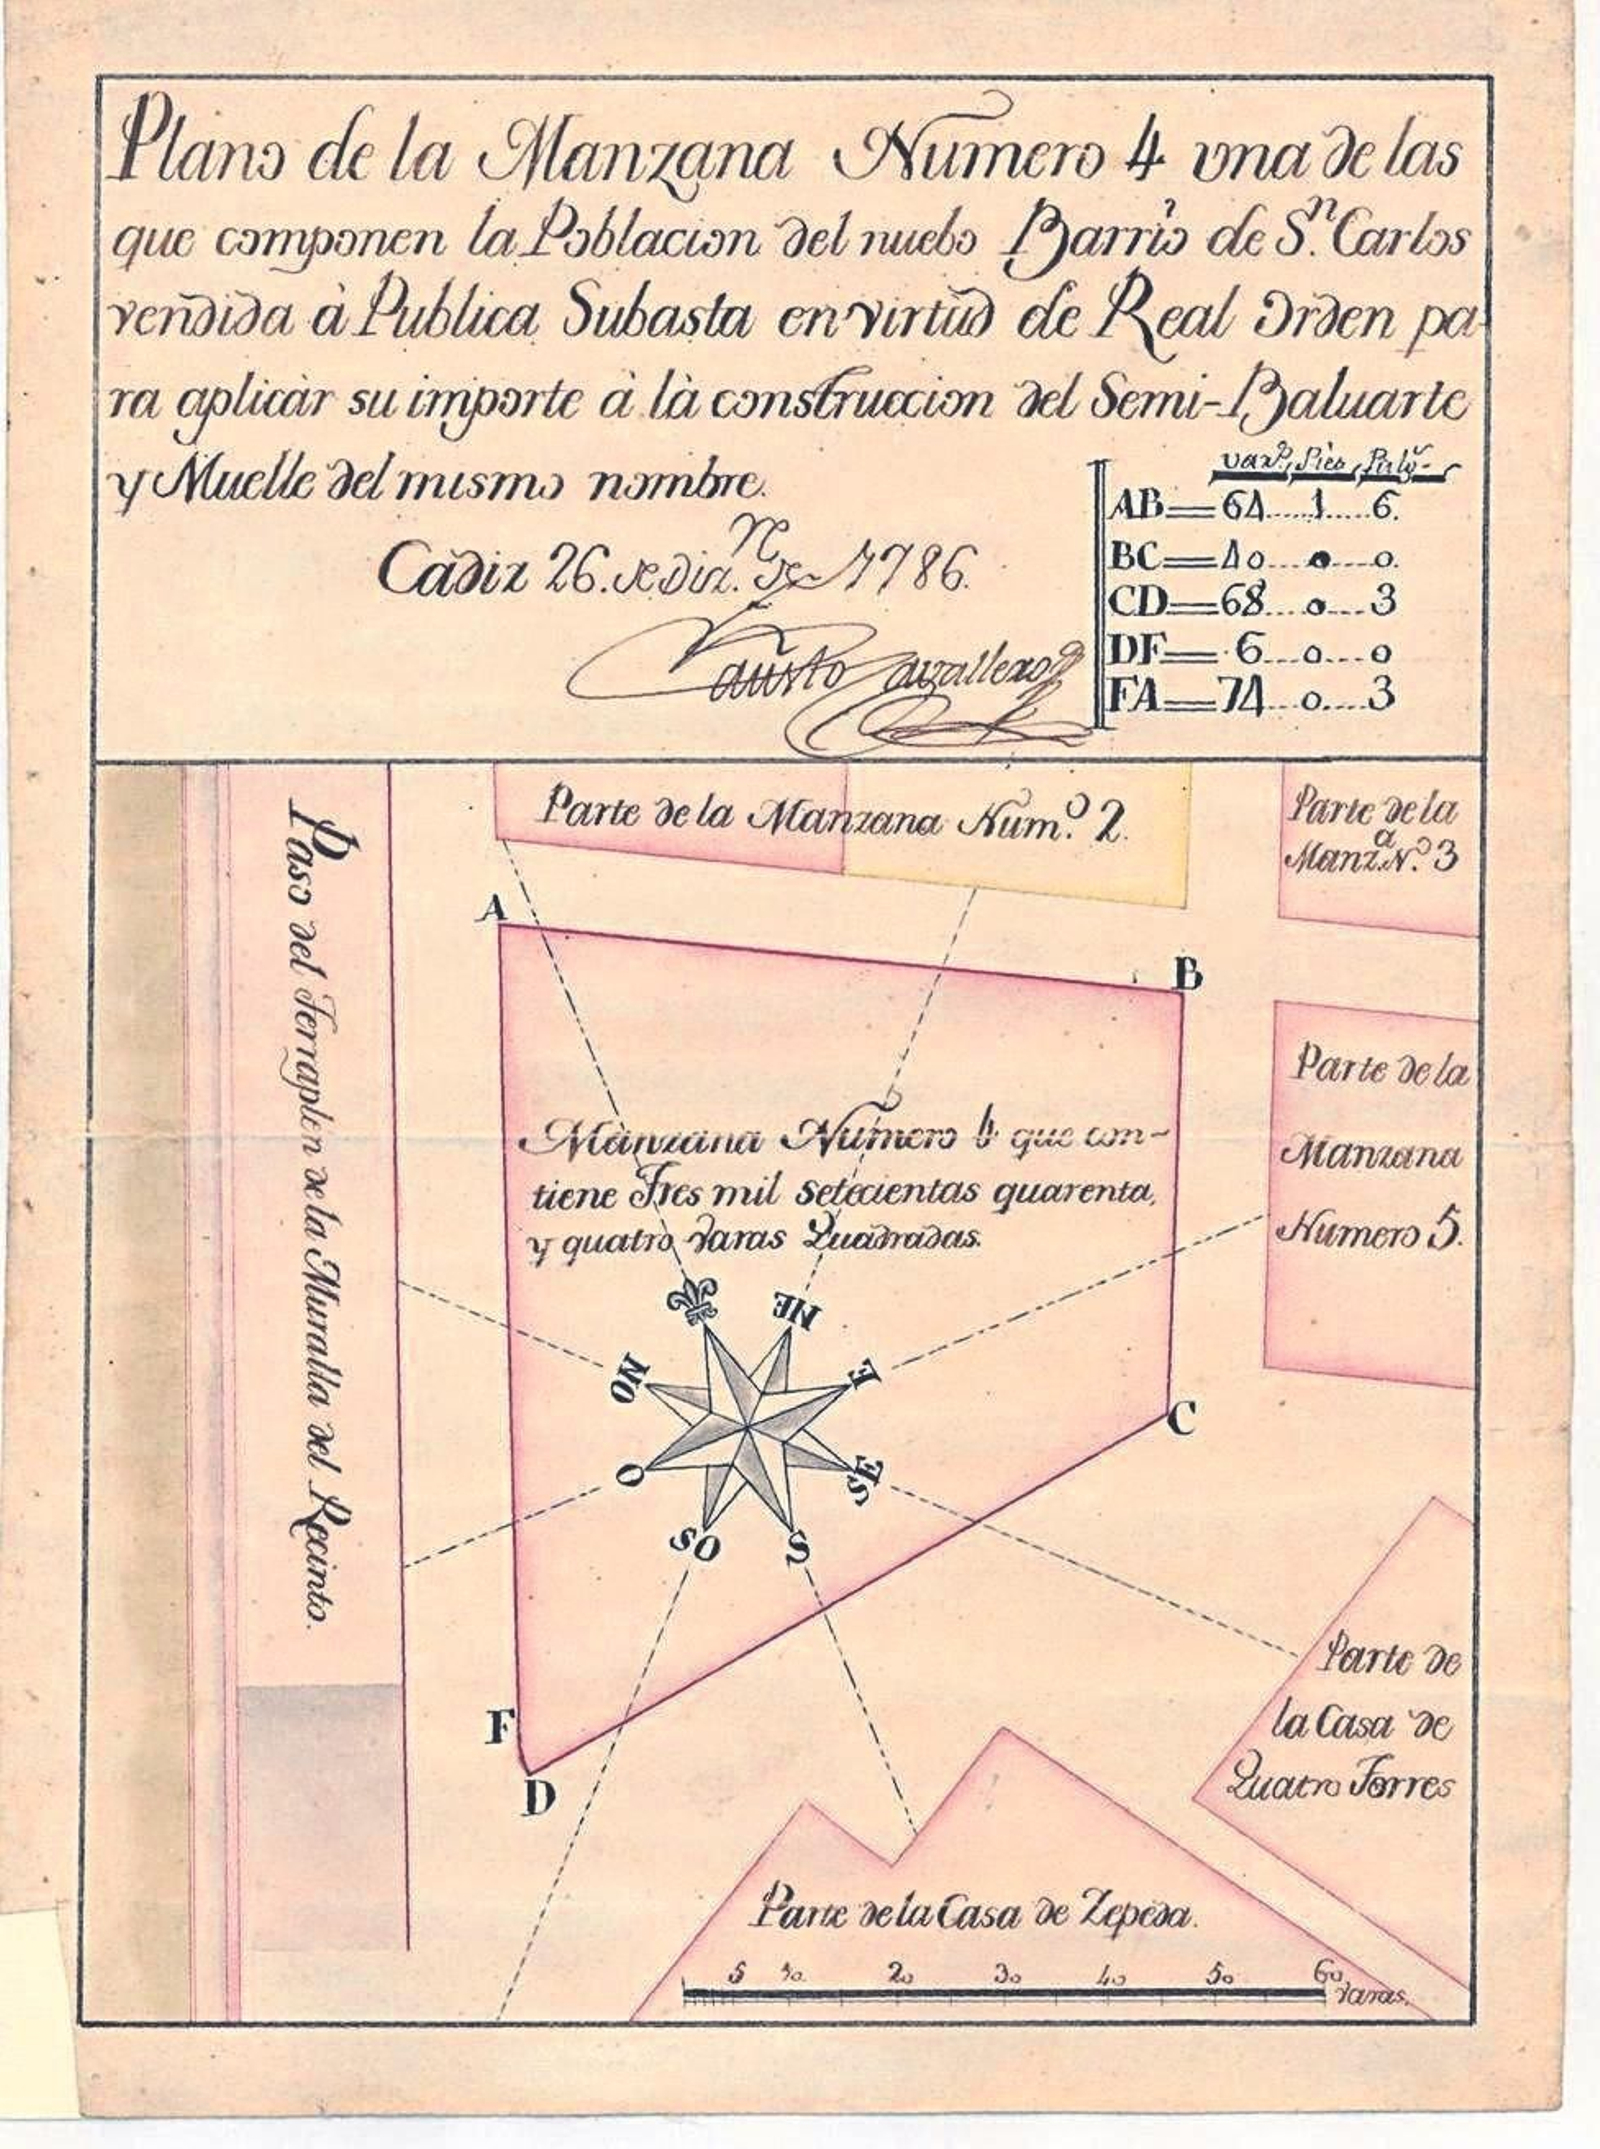 Plano de la Manzana Numero 4 vna de las
que componen la Poblacion del nuebo Barrio de Sn. Carlos
vendida à Publica Subasta en virtud de Real Orden pa-
ra aplicàr su importe à là construccion del Semi-Baluarte
y Muelle del mismo nombre.
Cadiz 26. de Dizre. de 1786.
Fausto Cavallero
vars., Pies, Pulgs.
AB=64.....1.....6.
BC=40....0....0.
CD=68....0....3
DF=6....0....0
FA=74....0....3
Parte de la Manzana Numo. 2.
Parte de la
Manza. No. 3
Paso del Terraplen de la Muralla del Recinto.
A
B
Parte de la
Manzana
Numero 5.
Manzana Numero 4 que con-
tiene Tres mil setecientas quarenta,
y quatro Varas Quadradas.
NE
NO
E
O
SE
SO
S
C
F
D
Parte de
la Casa de
Quatro Torres
Parte de la Casa de Zepeda.
5 10. 20 30 40 50 60 Varas.